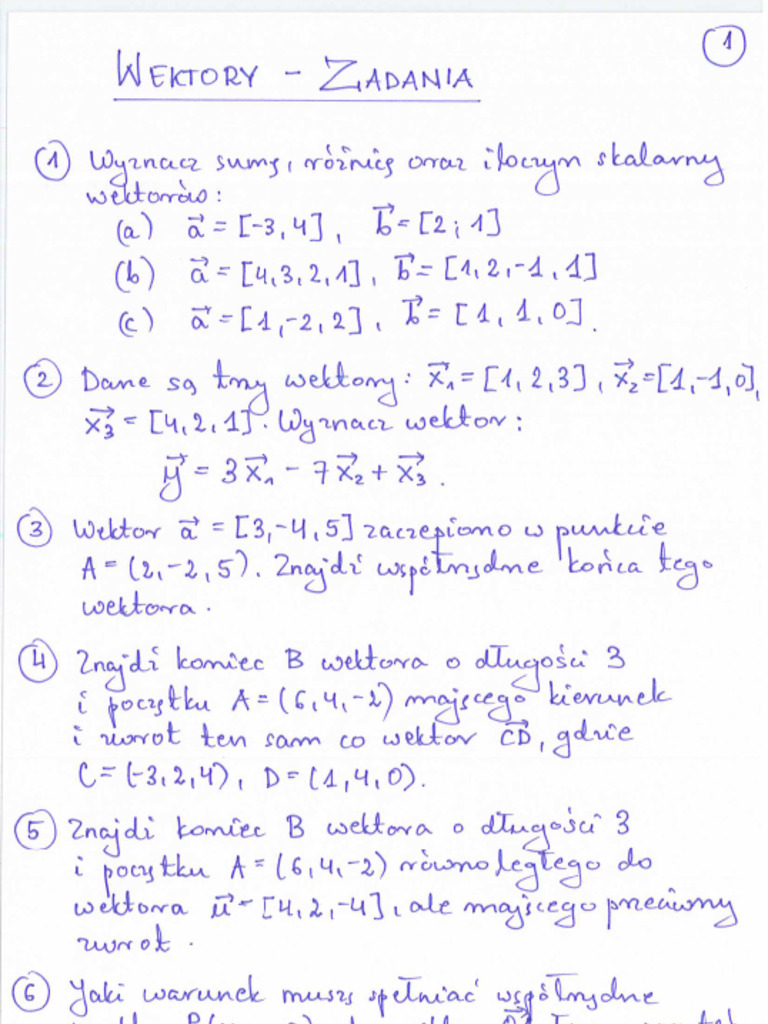 1
WEKTORY - ZADANIA
① Wyznacz sumę, różnicę oraz iloczyn skalarny
wektorów:
(a) a⃗ = [-3, 4], b⃗ = [2; 1]
(b) a⃗ = [4, 3, 2, 1], b⃗ = [1, 2, -1, 1]
(c) a⃗ = [1, -2, 2], b⃗ = [1, 1, 0].
② Dane są trzy wektory: x⃗₁ = [1, 2, 3], x⃗₂ = [1, -1, 0],
x⃗₃ = [4, 2, 1]. Wyznacz wektor:
y⃗ = 3x⃗₁ - 7x⃗₂ + x⃗₃.
③ Wektor a⃗ = [3, -4, 5] zaczepiono w punkcie
A = (2, -2, 5). Znajdź współrzędne końca tego
wektora.
④ Znajdź koniec B wektora o długości 3
i początku A = (6, 4, -2) mającego kierunek
i zwrot ten sam co wektor CD⃗, gdzie
C = (-3, 2, 4), D = (1, 4, 0).
⑤ Znajdź koniec B wektora o długości 3
i początku A = (6, 4, -2) równoległego do
wektora u⃗ = [4, 2, -4], ale mającego przeciwny
zwrot.
⑥ Jaki warunek muszą spełniać współrzędne